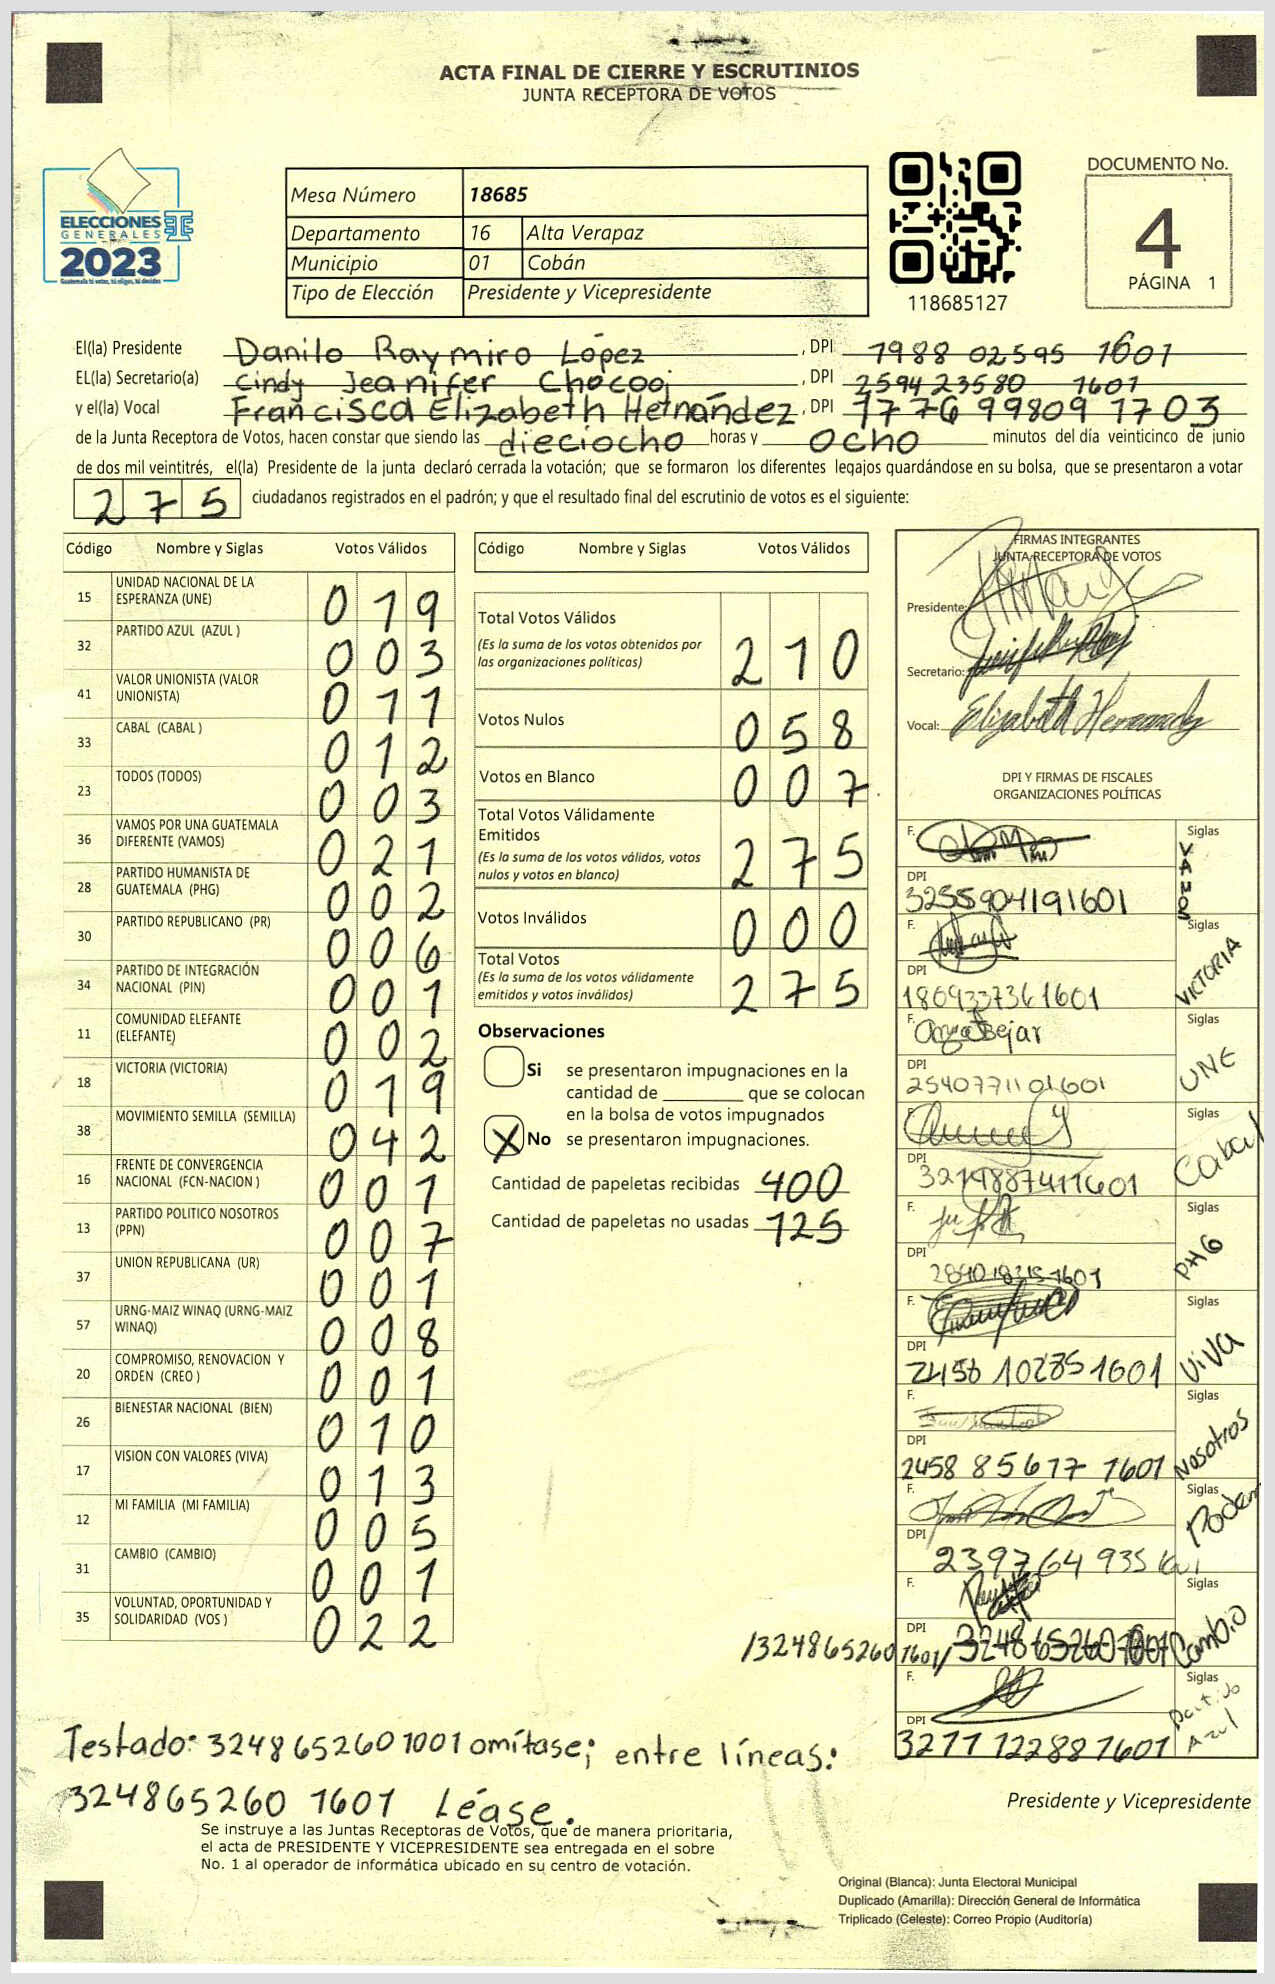 ACTA FINAL DE CIERRE Y ESCRUTINIOS
JUNTA RECEPTORA DE VOTOS
ELECCIONES
GENERALES
2023
Mesa Número 18685
Departamento 16 Alta Verapaz
Municipio 01 Cobán
Tipo de Elección Presidente y Vicepresidente
118685127
DOCUMENTO No.
4
PÁGINA 1
El(la) Presidente Danilo Raymiro López, DPI 1988 02595 1601
EL(la) Secretario(a) Cindy Jeanifer Chocooj, DPI 2594 23580 1601
y el(la) Vocal Francisca Elizabeth Hernández, DPI 1776 99809 1703
de la Junta Receptora de Votos, hacen constar que siendo las dieciocho horas y ocho minutos del día veinticinco de junio
de dos mil veintitrés, el(la) Presidente de la junta declaró cerrada la votación; que se formaron los diferentes legajos guardándose en su bolsa, que se presentaron a votar
275 ciudadanos registrados en el padrón; y que el resultado final del escrutinio de votos es el siguiente:
Código Nombre y Siglas Votos Válidos
15 UNIDAD NACIONAL DE LA ESPERANZA (UNE) 019
32 PARTIDO AZUL (AZUL ) 003
41 VALOR UNIONISTA (VALOR UNIONISTA) 011
33 CABAL (CABAL ) 012
23 TODOS (TODOS) 003
36 VAMOS POR UNA GUATEMALA DIFERENTE (VAMOS) 021
28 PARTIDO HUMANISTA DE GUATEMALA (PHG) 002
30 PARTIDO REPUBLICANO (PR) 006
34 PARTIDO DE INTEGRACIÓN NACIONAL (PIN) 001
11 COMUNIDAD ELEFANTE (ELEFANTE) 002
18 VICTORIA (VICTORIA) 019
38 MOVIMIENTO SEMILLA (SEMILLA) 042
16 FRENTE DE CONVERGENCIA NACIONAL (FCN-NACION ) 001
13 PARTIDO POLITICO NOSOTROS (PPN) 007
37 UNION REPUBLICANA (UR) 001
57 URNG-MAIZ WINAQ (URNG-MAIZ WINAQ) 008
20 COMPROMISO, RENOVACION Y ORDEN (CREO ) 001
26 BIENESTAR NACIONAL (BIEN) 010
17 VISION CON VALORES (VIVA) 013
12 MI FAMILIA (MI FAMILIA) 005
31 CAMBIO (CAMBIO) 001
35 VOLUNTAD, OPORTUNIDAD Y SOLIDARIDAD (VOS ) 022
Código Nombre y Siglas Votos Válidos
Total Votos Válidos
(Es la suma de los votos obtenidos por
las organizaciones políticas) 210
Votos Nulos 058
Votos en Blanco 007
Total Votos Válidamente
Emitidos
(Es la suma de los votos válidos, votos
nulos y votos en blanco) 275
Votos Inválidos 000
Total Votos
(Es la suma de los votos válidamente
emitidos y votos inválidos) 275
Observaciones
Si se presentaron impugnaciones en la
cantidad de ________ que se colocan
en la bolsa de votos impugnados
X No se presentaron impugnaciones.
Cantidad de papeletas recibidas 400
Cantidad de papeletas no usadas 125
FIRMAS INTEGRANTES
JUNTA RECEPTORA DE VOTOS
Presidente:
Secretario:
Vocal: Elizabeth Hernandez
DPI Y FIRMAS DE FISCALES
ORGANIZACIONES POLÍTICAS
F. Siglas VAMOS
DPI 3255904191601
F. Siglas VICTORIA
DPI 1809337361601
F. Siglas UNE
DPI 2540771101601
F. Siglas Cabal
DPI 3219887411601
F. Siglas PHG
DPI
F. Siglas VIVA
DPI 2458 10285 1601
F. Siglas Nosotros
DPI 2458 85617 1601
F. Siglas Poder
DPI 2397 64 935 1601
F. Siglas Cambio
DPI /324865260 1601/
F. Siglas Partido Azul
DPI 3277 12288 1601
Testado: 3248652601001 omítase; entre líneas:
324865260 1601 Léase.
Presidente y Vicepresidente
Se instruye a las Juntas Receptoras de Votos, que de manera prioritaria,
el acta de PRESIDENTE Y VICEPRESIDENTE sea entregada en el sobre
No. 1 al operador de informática ubicado en su centro de votación.
Original (Blanca): Junta Electoral Municipal
Duplicado (Amarilla): Dirección General de Informática
Triplicado (Celeste): Correo Propio (Auditoría)